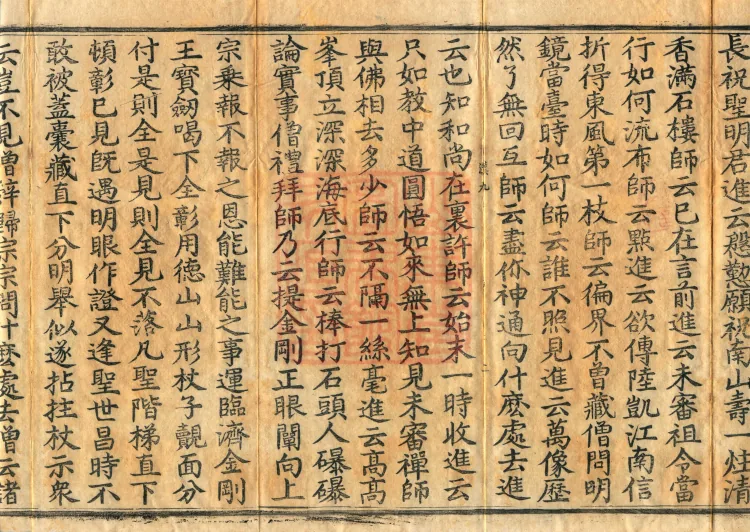 長祝聖明君進云慇懃願祝南山壽一炷清
香滿石樓師云已在言前進云未審祖令當
行如何流布師云點進云欲傳陸凱江南信
折得東風第一枝師云徧界不曾藏僧問明
鏡當臺時如何師云誰不照見進云萬像歷
然了無回互師云盡你神通向什麽處去進
云也知和尚在裏許師云始末一時收進云
只如教中道圓悟如來無上知見未審禪師
與佛相去多少師云不隔一絲毫進云高高
峯頂立深深海底行師云棒打石頭人曝曝
論實事僧禮拜師乃云提金剛正眼闡向上
宗乘報不報之恩能難能之事運臨濟金剛
王寶劒喝下全彰用德山山形杖子覿面分
付是則全是見則全見不落凡聖階梯直下
頓彰已見旣遇明眼作證又逢聖世昌時不
敢被蓋囊藏直下分明舉似遂拈拄杖示衆
云豈不見曾辭歸宗宗問什麽處去曾云諸